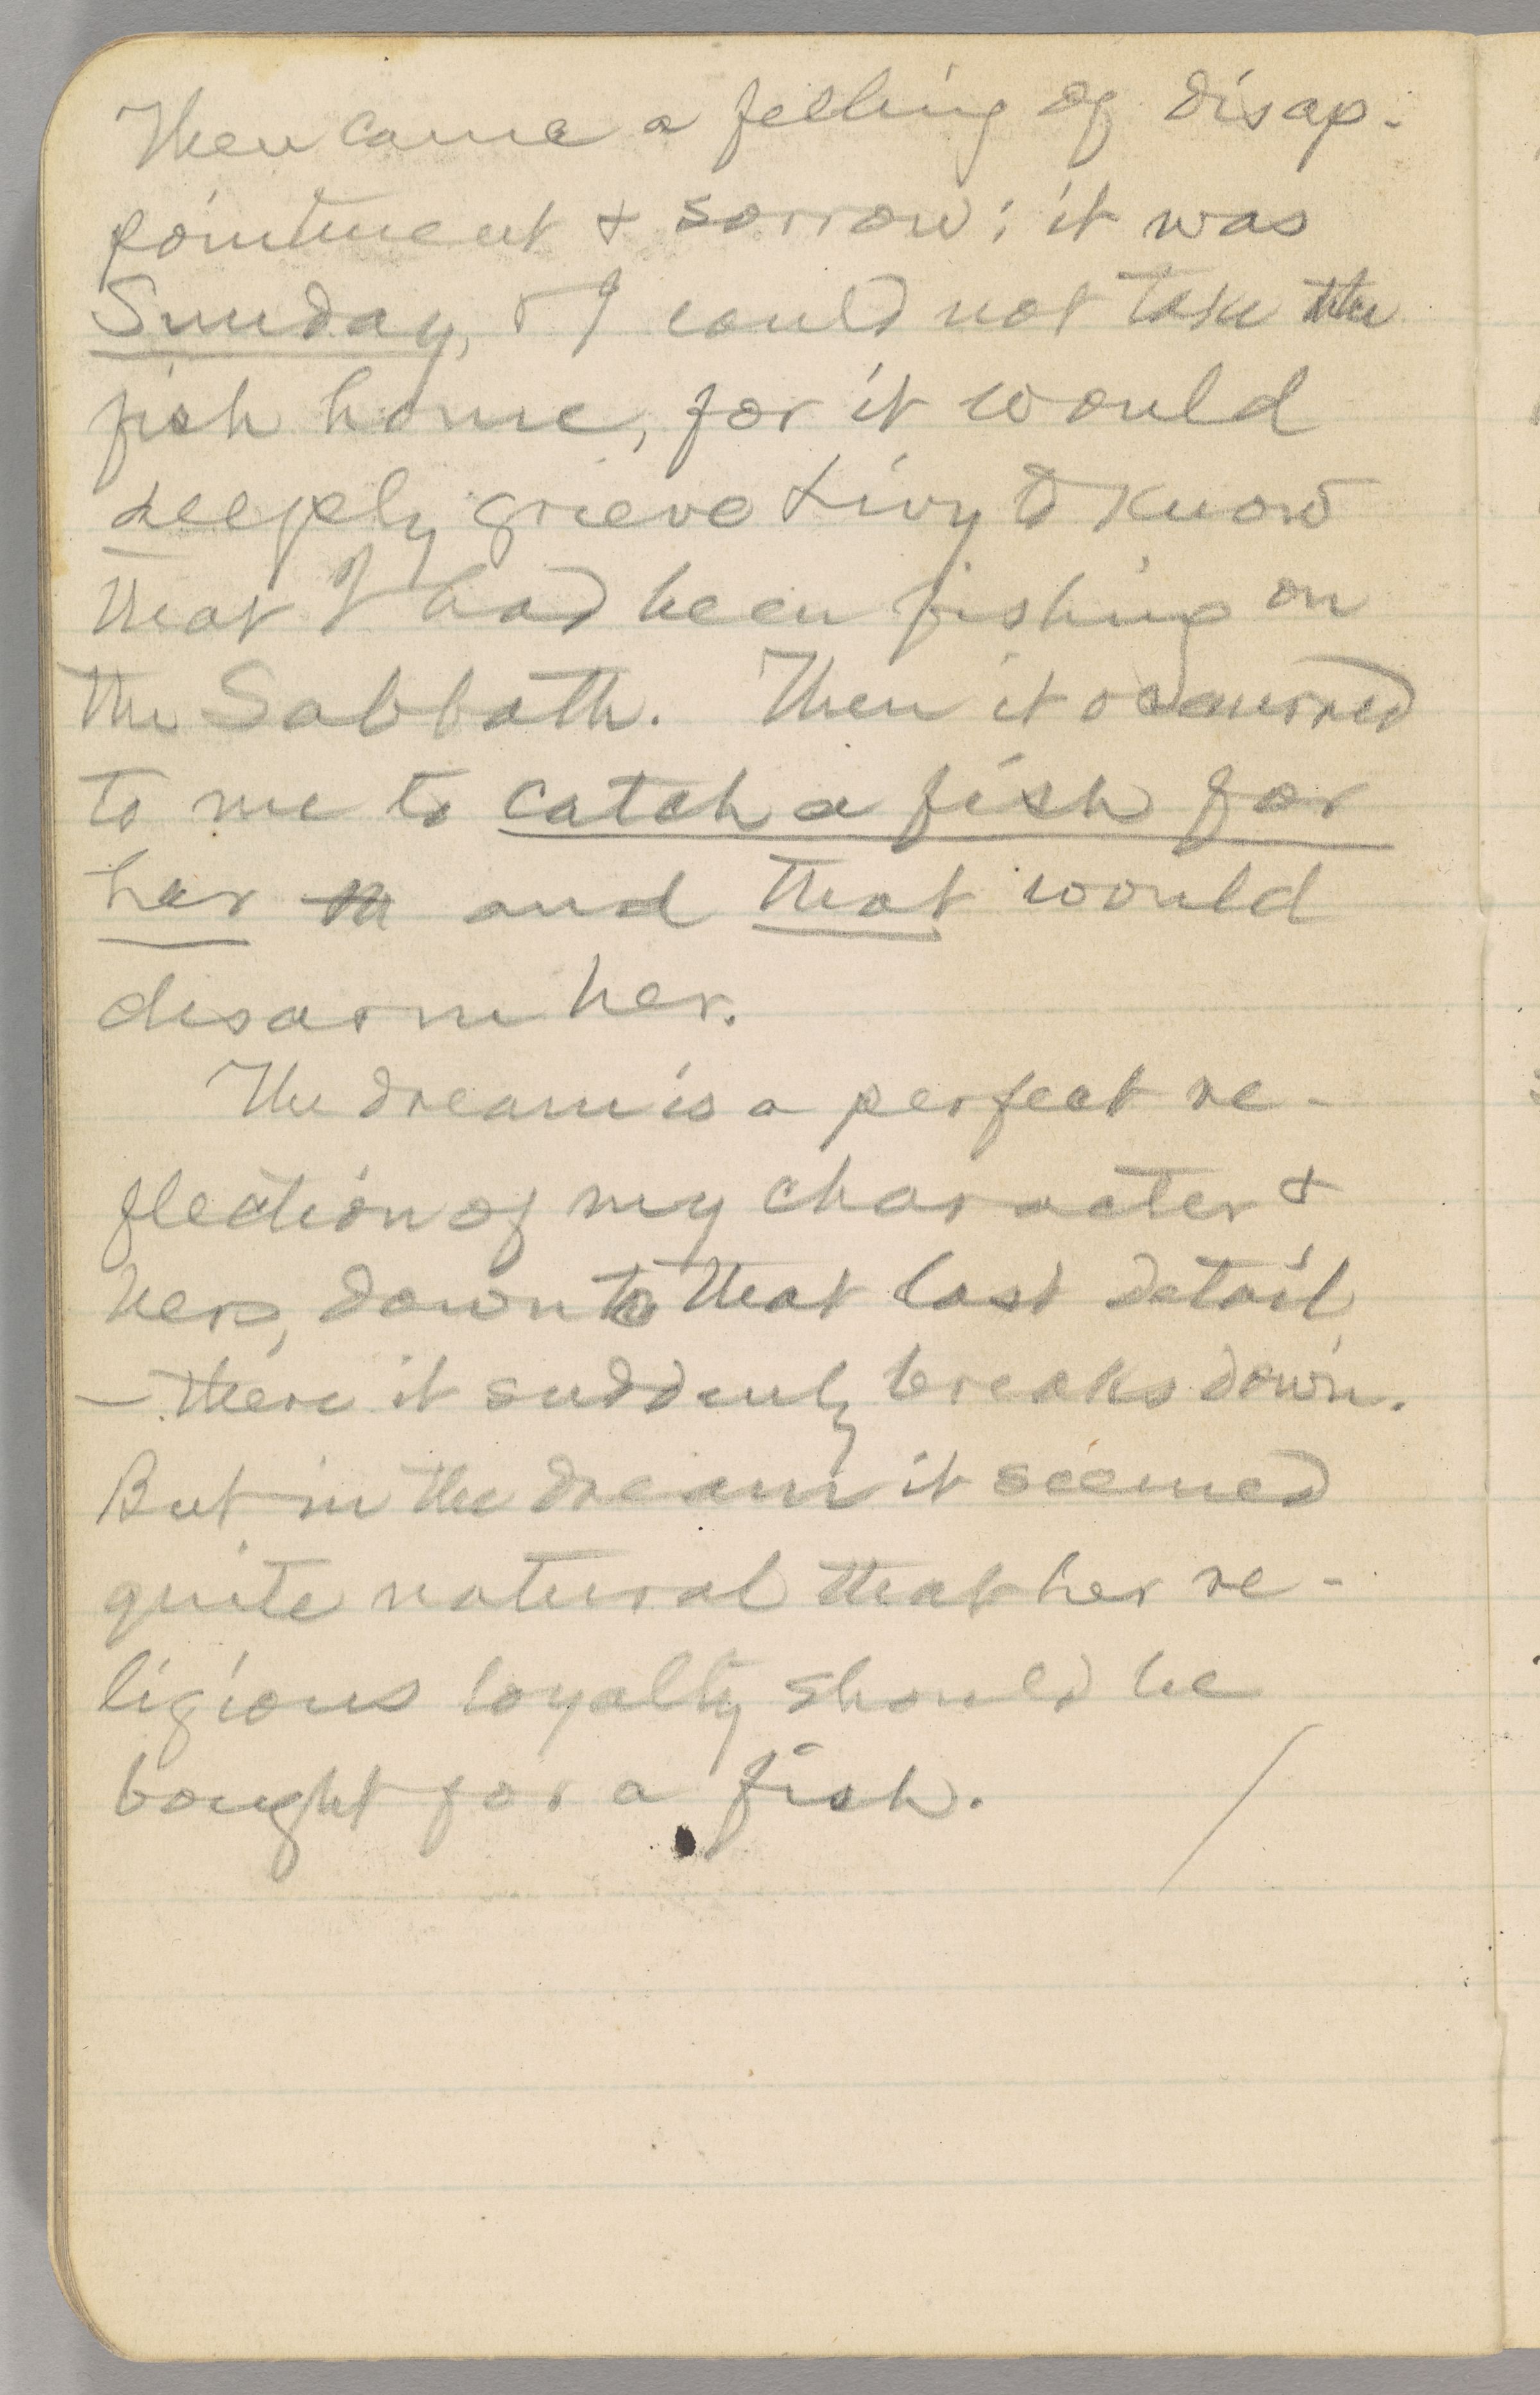 Then came a felling of disap-
pointment & sorrow; it was
Sunday, & I could not take the
fish home, for it would
deeply grieve Livy to know
that I had been fishing on
the Sabbath. Then it occurred
to me to catch a fish for
her and that would
disarm her.
The dream is a perfect re-
flection of my character &
hers, down to that last detail
— there it suddenly breaks down.
But in the dream it seemed
quite natural that her re-
ligious loyalty should be
bought for a fish.